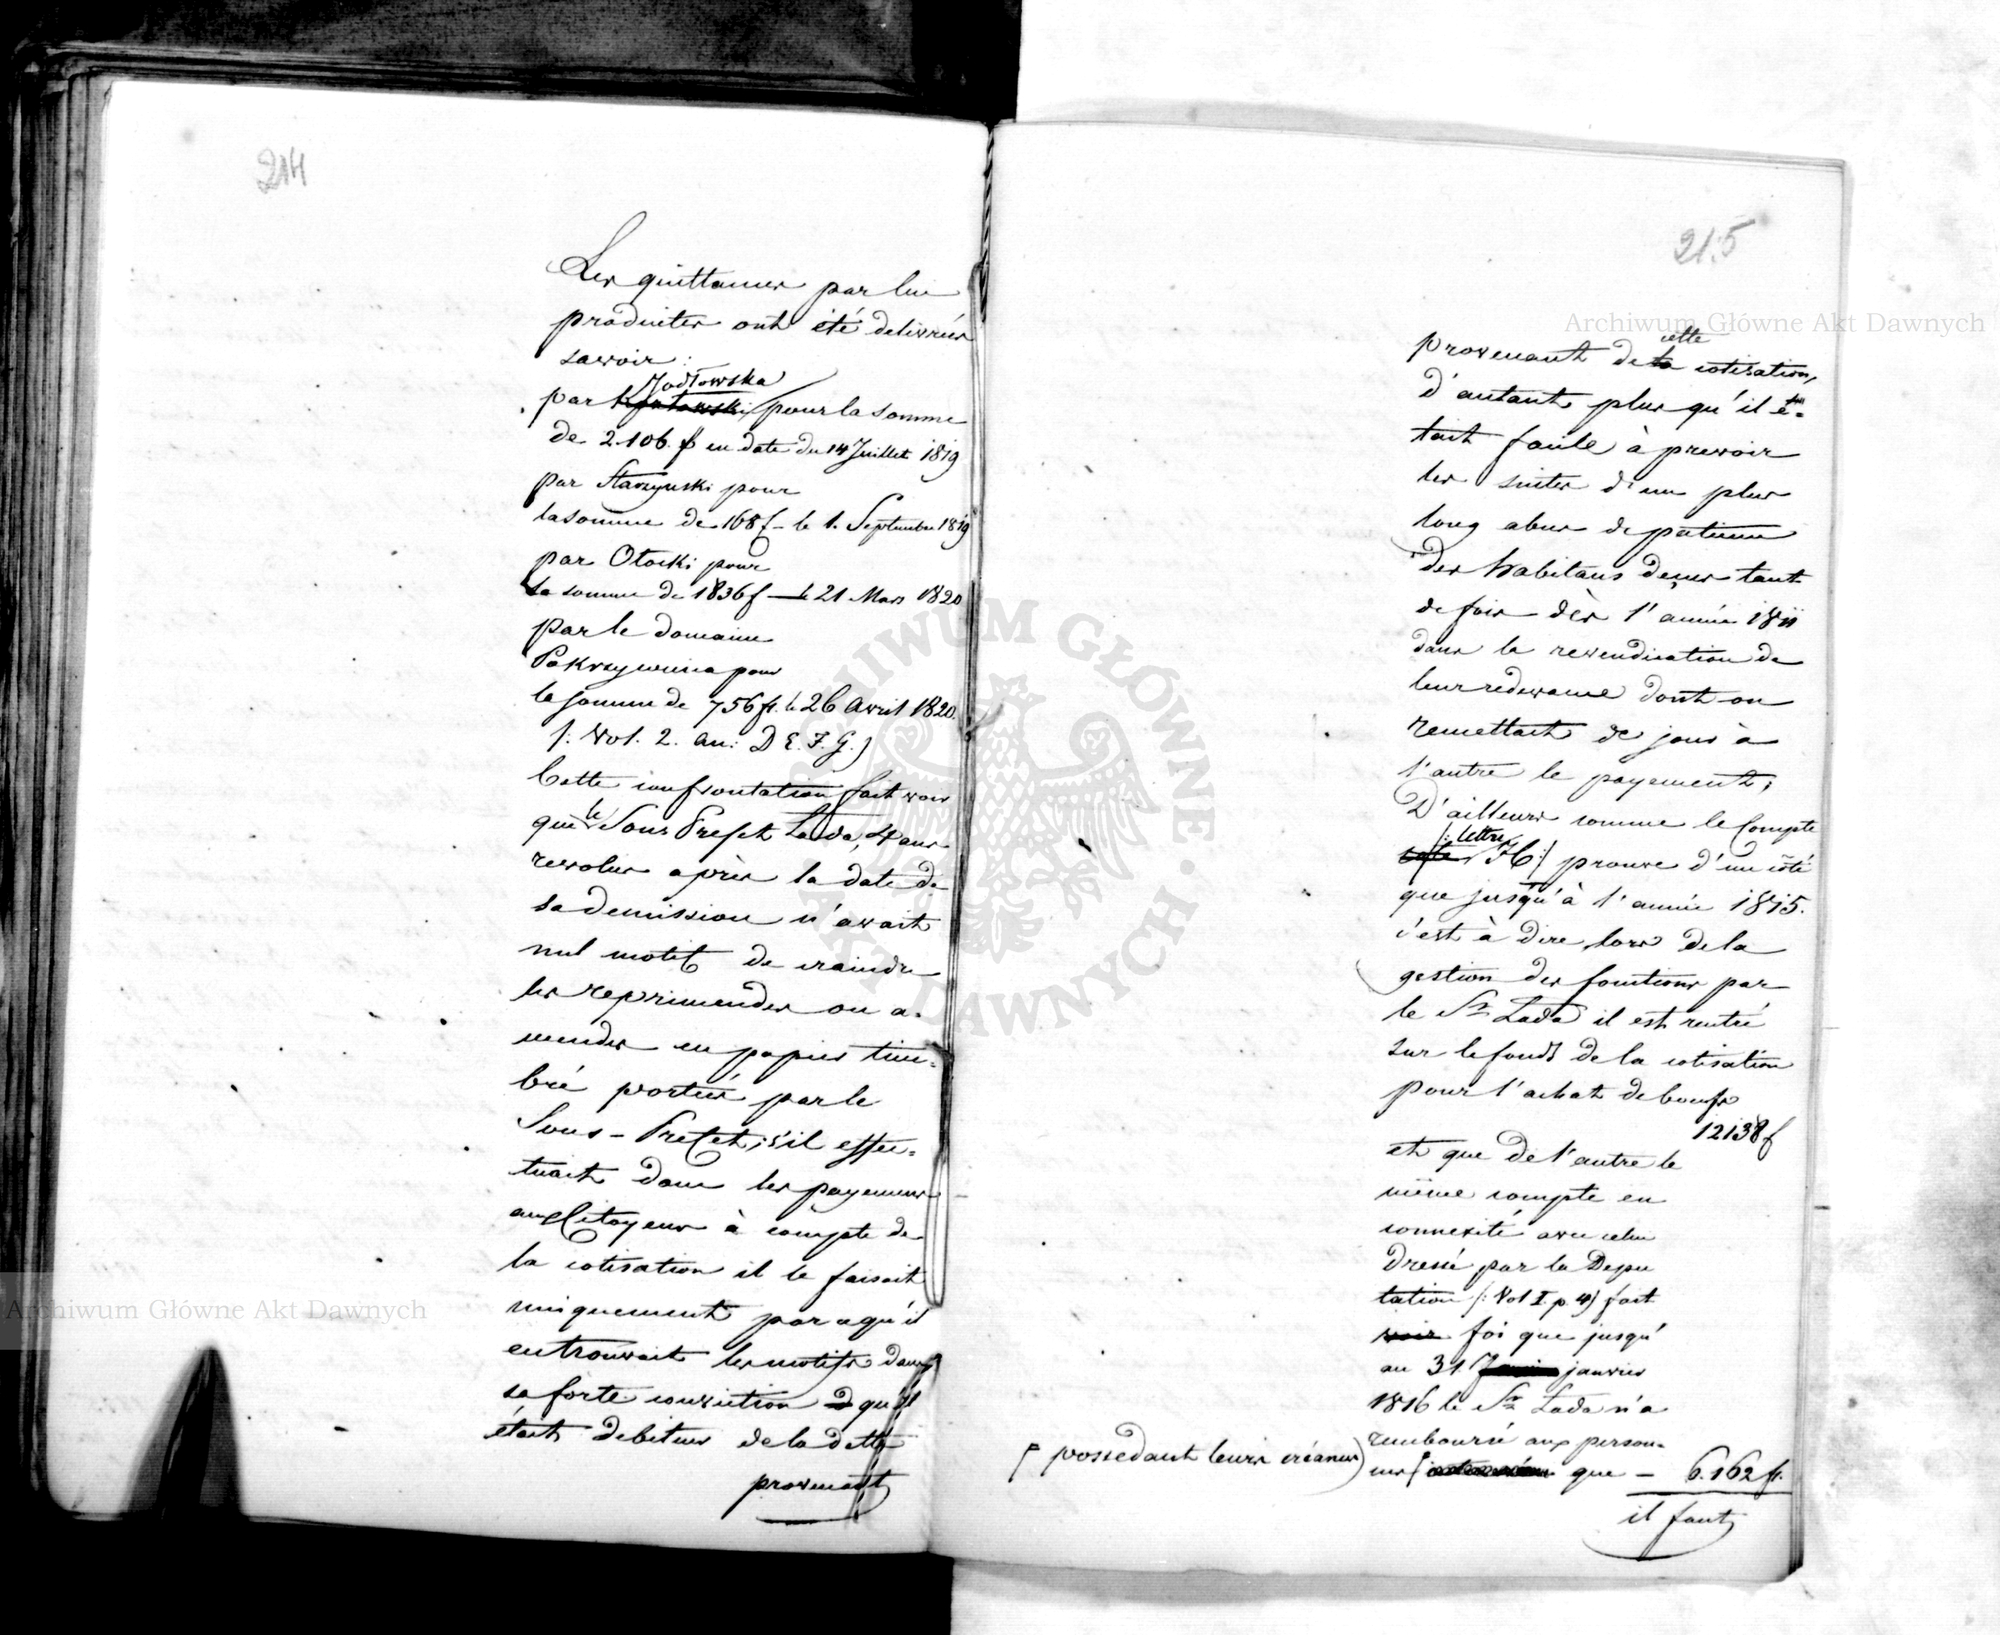 214
Les quittances par lui
produites ont été delivrées
savoir :
Jodłowska
par pour la somme
de 2.106. f en date du 14 Juillet 1819
par Starzynski pour
la somme de 168 f – le 1. Septembre 1819
par Otocki pour
la somme de 1836 f – le 21 Mars 1820
par le domaine
Pokrzywnica pour
la somme de 756 fl. le 26 Avril 1820.
/: Vol. 2. an: D E. F. G.)
Cette confrontation fait voir
que le Sous Prefet Łada, 4 ans
revolus après la date de
sa demission n'avait
nul motif de craindre
les reprimendes ou a-
mendes en papier tim-
bré portées par le
Sous-Prefet; s'il effec-
tuait donc les payemens
aux Citoyens à compte de
la cotisation il le faisait
uniquement parcequ'il
en trouvait les motifs dans
sa forte conviction qu'il
était debiteur de la dette
provenant
215
cette
provenant de la cotisation,
d'autant plus qu'il é-
tait facile à prevoir
les suites d'un plus
long abus de patience
des habitans deçus tant
de fois dès l'année 1811
dans la revendication de
leur redevance dont on
remettait de jour à
l'autre le payement;
D'ailleurs comme le Compte
/: lettre
coté H :/ prouve d'un côté
que jusqu'à l'année 1815.
c'est à dire lors de la
gestion des fonctions par
le Sr Łada il est rentré
sur le fond de la cotisation
pour l'achat de boeufs
12138 f
et que de l'autre le
même compte en
connexité avec celui
dressé par la Depu
tation /: Vol I. p. 4) fait
voir foi que jusqu'
au 31. janvier
1816 le Sr Łada n'a
remboursé aux person-
nes que – 6.162 fl.
possedant leurs créances
il faut
Archiwum Główne Akt Dawnych
Archiwum Główne Akt Dawnych
ARCHIWUM GŁÓWNE AKT DAWNYCH